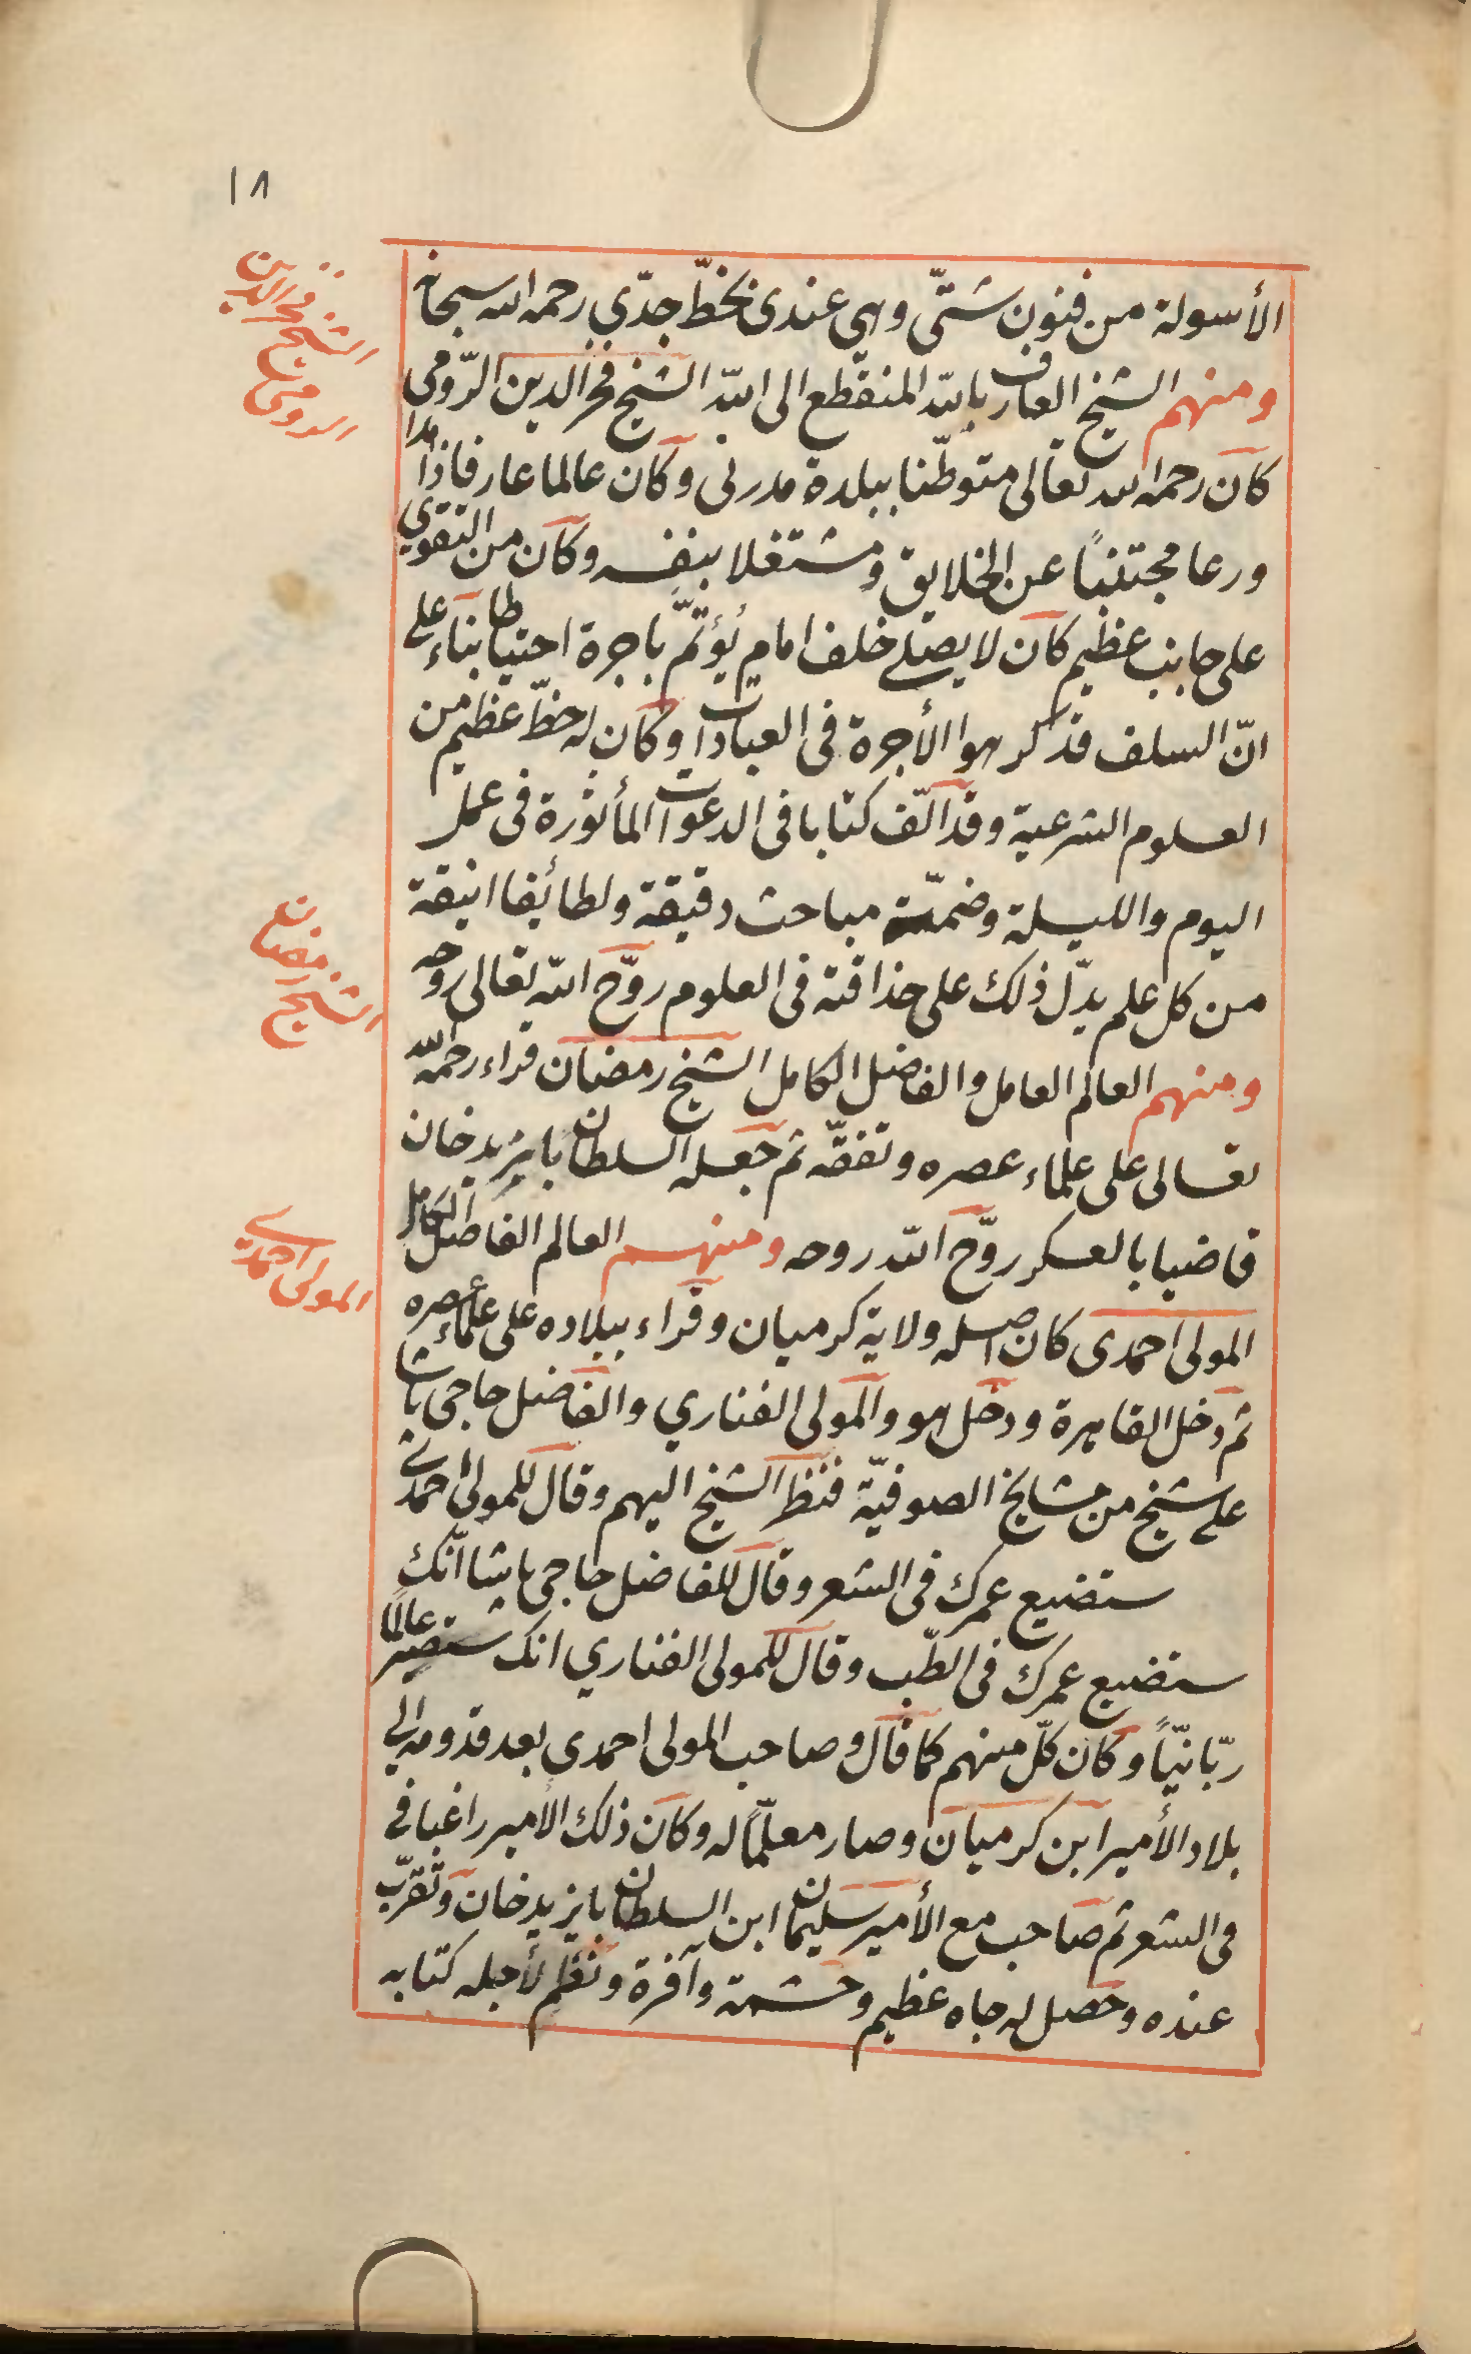 ١٨
الأسولة من فنون شتّى وهى عندى بخطّ جدّي رحمه الله سبحانه
ومنهم الشيخ العارف بالله المنقطع الى الله الشيخ فخر الدين الرّومى
كان رحمه الله تعالى متوطّنا ببلدة مدرنى وكان عالما عارفا زاهدا
ورعا مجتنبًا عن الخلايق ومشتغلا بنفسه وكان من التقوي
على جانب عظيم كان لا يصلى خلف امام يؤتمّ باجرة احتياطا بناء على
انّ السلف قد كرهوا الأجرة فى العبادات وكان له حظّ عظيم من
العلوم الشرعية وقد ألّف كتابا فى الدعوات المأثورة فى عمل
اليوم والليلة وضمّنه مباحث دقيقة ولطائفا انيقة
من كل علم يدّل ذلك على حذاقته فى العلوم روّح الله تعالى روحه
ومنهم العالم العامل والفاضل الكامل الشيخ رمضان قراء رحمه الله
تعالى على علماء عصره وتفقّه ثم جعله السلطان بايزيد خان
قاضيا بالعسكر روّح الله روحه ومنهم العالم الفاضل الكامل
المولى احمدى كان اصله ولاية كرميان وقراء ببلاده على علماء عصره
ثم دخل القاهرة ودخل هو والمولى الفناري والفاضل حاجى باشا
على شيخ من مشايخ الصوفيّة فنظر الشيخ اليهم وقال للمولى احمدى
ستضيع عمرك فى الشعر وقال للفاضل حاجى باشا انّك
ستضيع عمرك فى الطّب وقال للمولى الفناري انك ستصير عالمًا
ربّانيّاً وكان كلّ منهم كما قال وصاحب المولى احمدى بعد قدومه الى
بلاد الأمير ابن كرميان وصار معلّماً له وكان ذلك الأمير راغبا فى
فى الشعر ثم صاحب مع الأمير سليمان ابن السلطان بايزيد خان وتقرّب
عنده وحصل له جاه عظيم وحشمة وآفرة ونظم لأجله كتابه
الشيخ فخر الدين
الرومى
الشيخ رمضان
المولى احمدى